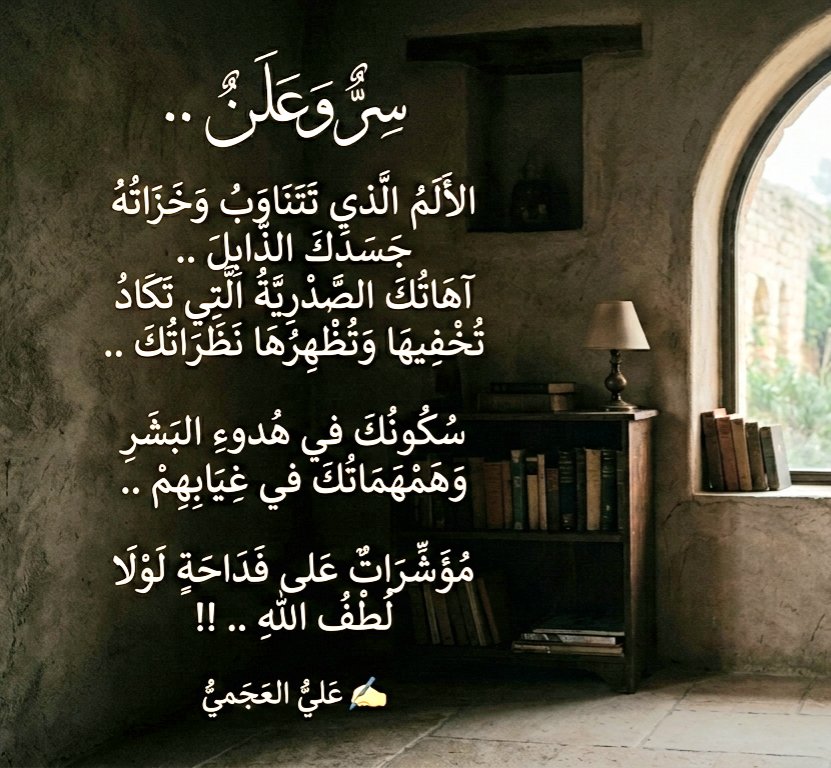 سِرٌّ وَعَلَنٌ ..
الأَلَمُ الَّذي تَتَنَاوَبُ وَخَزَاتُهُ
جَسَدَكَ الذَّابِلَ ..
آهَاتُكَ الصَّدْرِيَّةُ الَّتِي تَكَادُ
تُخْفِيهَا وَتُظْهِرُهَا نَظَرَاتُكَ ..
سُكُونُكَ في هُدوءِ البَشَرِ
وَهَمْهَمَاتُكَ في غِيَابِهِمْ ..
مُؤَشِّرَاتٌ عَلى فَدَاحَةٍ لَوْلَا
لُطْفُ اللهِ .. !!
✍️ عَليُّ العَجَميُّ